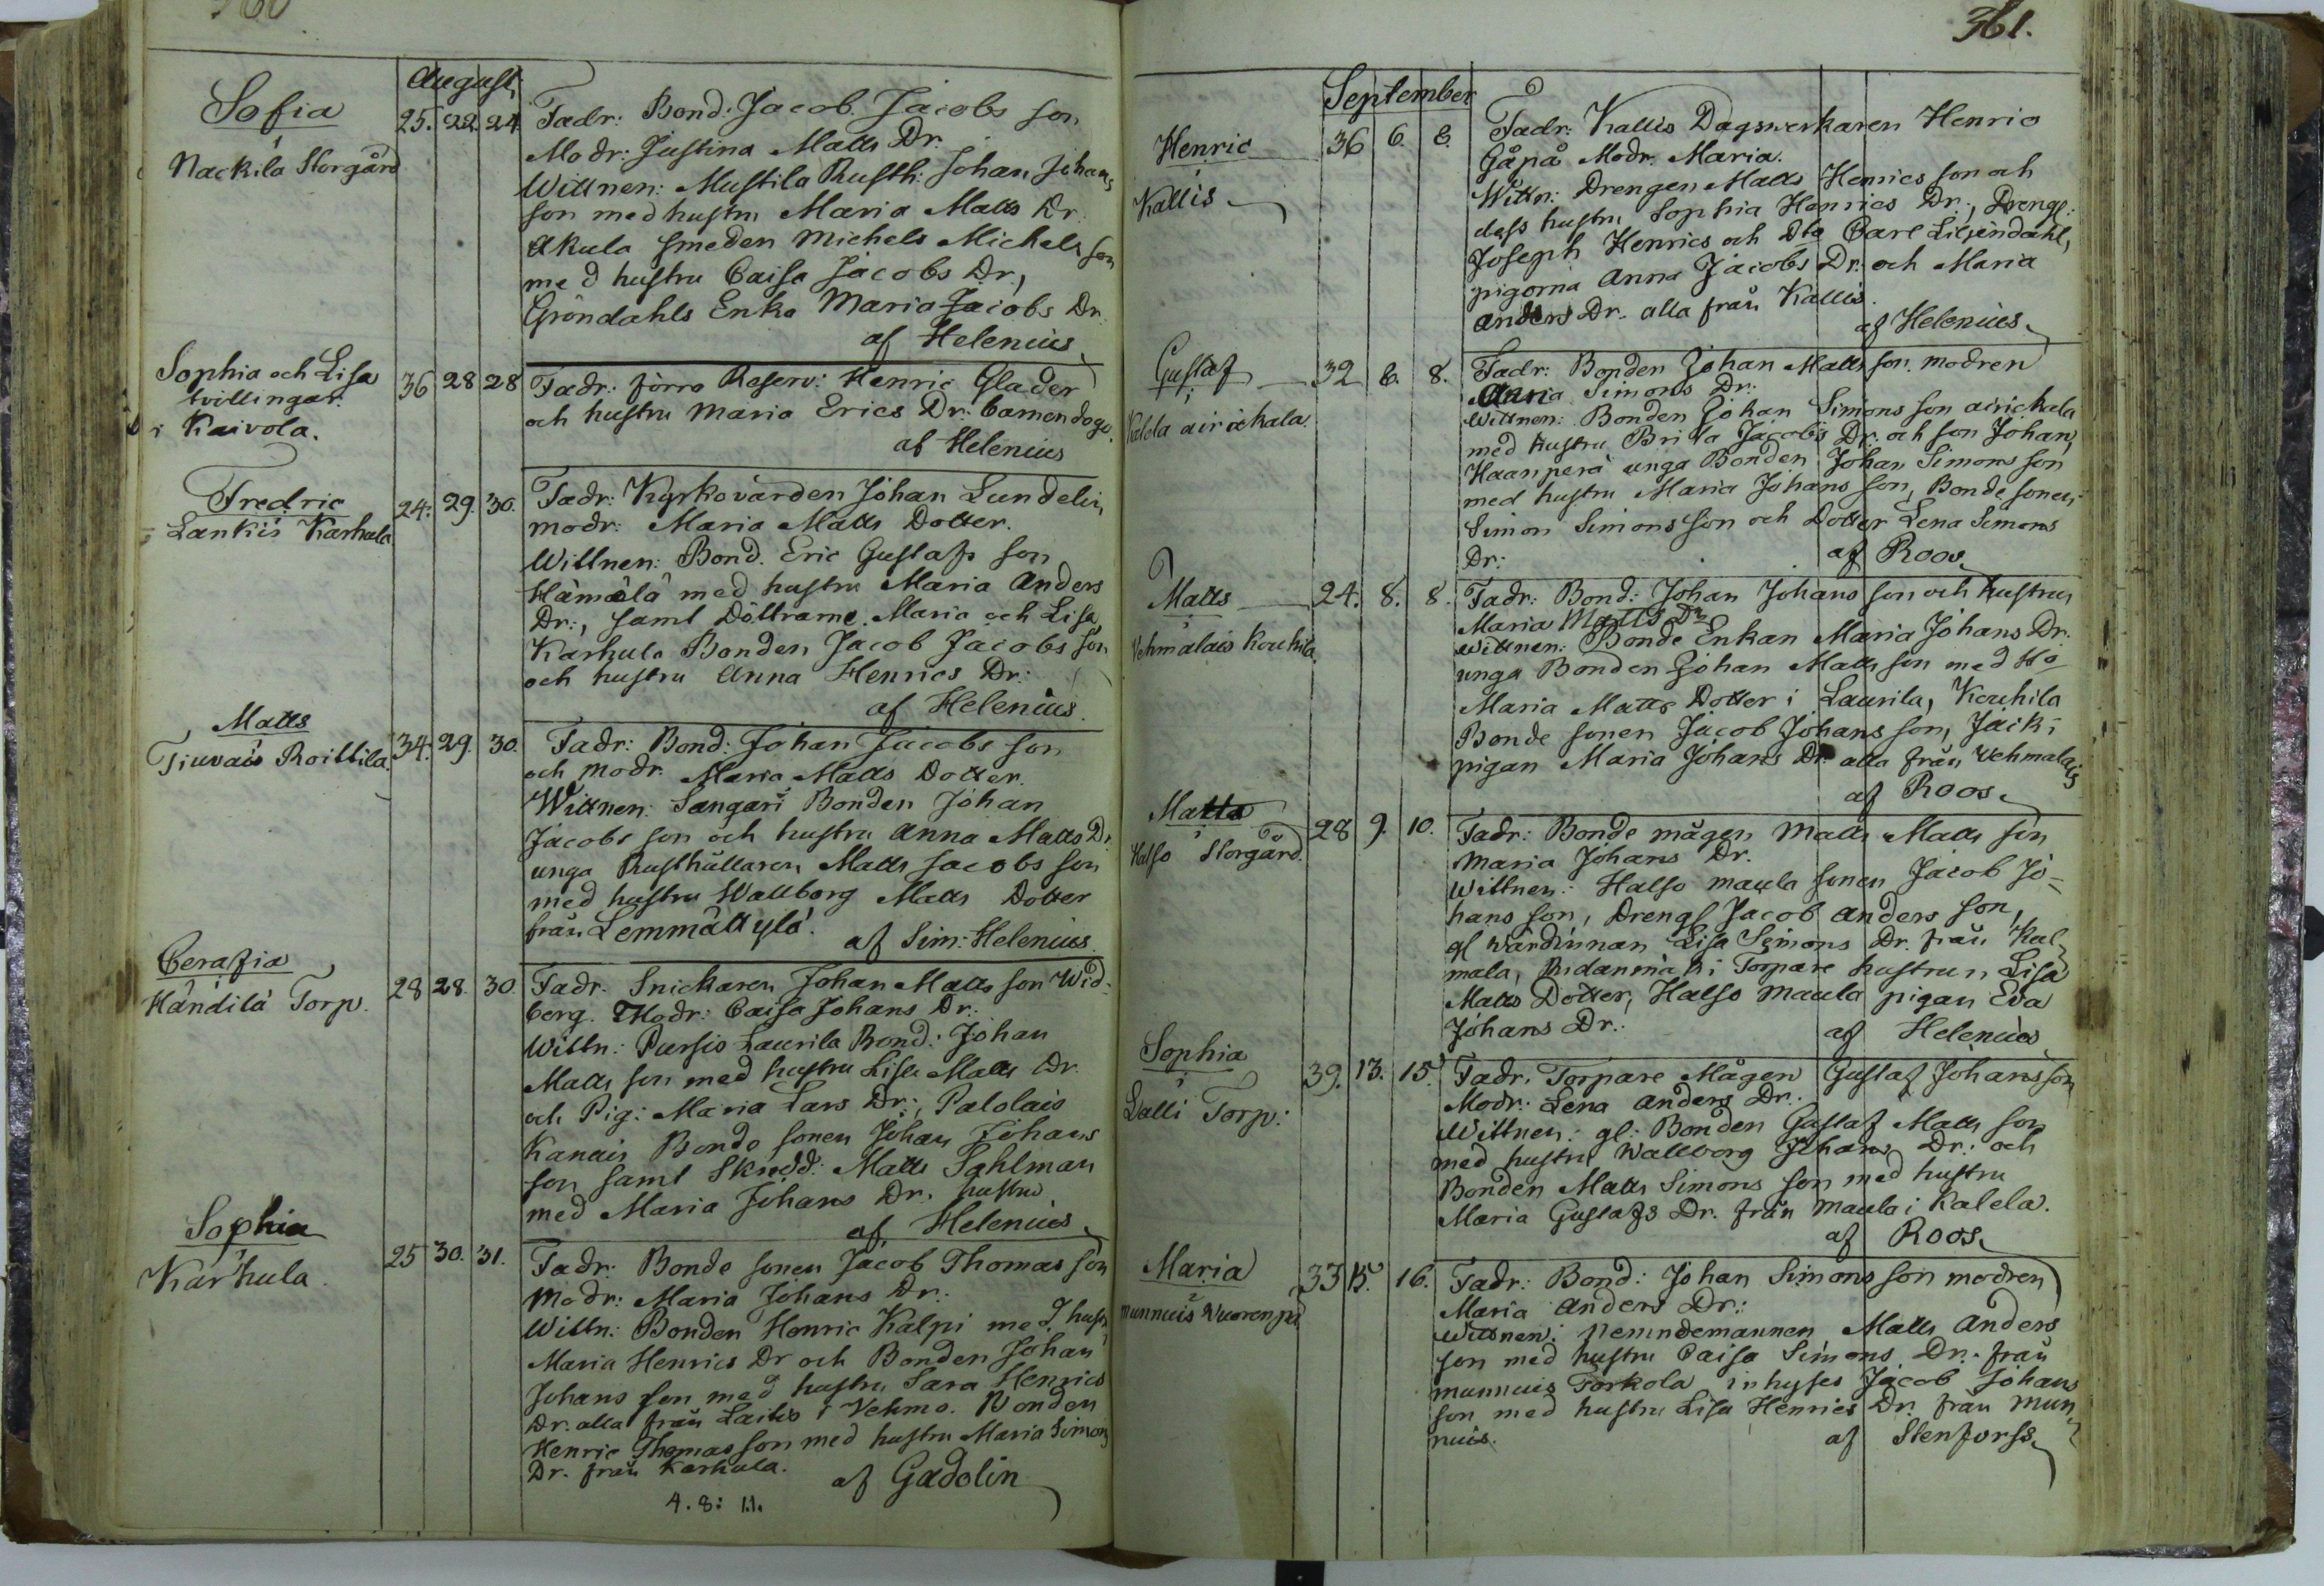 360
August,
Sofia
i
Nackila Storgård
25. 22. 24
Fadr: Bond: Jacob Jacobs son
Modr: Justina Matts Dr.
Wittnen: Mustila Rusth: Johan Johans
son med hustru Maria Matts Dr.
Akula smeden Michels Michels son
med hustru Caisa Jacobs Dr,
Gröndahls Enka Maria Jacobs Dr.
af Helenius
Sophia och Lisa
tvillingar.
i Kaivola.
36 28 28
Fadr: förra Reserv: Henric Glader
och hustru Maria Erics Dr:
af Helenius
Fredric
i
Lankis Karhula
24. 29. 30.
Fadr: Kyrkovärden Johan Lundelin,
modr: Maria Matts Dotter.
Wittnen: Bond. Eric Gustafs son
Hämälä med hustru Maria Anders
Dr:, samt Döttrarne Maria och Lisa,
Karhula Bonden Jacob Jacobs son
och hustru Anna Henrics Dr:
af Helenius.
Matts
i
Tiuvais Roittila.
34. 29. 30.
Fadr: Bond: Johan Jacobs son
och Modr. Maria Matts Dotter.
Wittnen: Sangari Bonden Johan
Jacobs son och hustru Anna Matts Dr.
unga Rusthållaren Matts Jacobs son
med hustru Wallborg Matts Dotter
från Lemmättylä.
af Sim: Helenius.
Cerafia
i
Händilä Torp.
28 28. 30.
Fadr. Snickaren Johan Matts son Wid-
berg. Modr: Caisa Johans Dr:
Wittn: Pursis Laurila Bond: Johan
Matts son med hustru Lisa Matts Dr.
och Pig: Maria Lars Dr:, Palolais
Kanais Bonde sonen Johan Johans
son samt Skrädd: Matts Sahlman
med Maria Johans Dr. hustru
af Helenius
Sophia
i
Karhula.
25 30. 31.
Fadr: Bonde sonen Jacob Thomas son
Modr: Maria Johans Dr.
Wittn: Bonden Henric Kalpi med hust
Maria Henrics Dr och Bonden Johan
Johans son med hustru Sara Henrics
Dr. alla från Laitis i Vehmo. Bonden
Henric Thomas son med hustru Maria Simons
Dr. från Karhula.
af Gadolin
4. 8: 11.
361.
September
Henric
i
Kallis
36 6. 8.
Fadr: Kallis Dagswerkaren Henric
Gåpå Modr. Maria.
Wittn: Drengen Matts Henrics son och
dess hustru Sophia Henrics Dr:, Drengl:
Joseph Henrics och Dto Carl Liljendahl,
pigorna Anna Jacobs Dr: och Maria
Anders Dr. alla från Kallis.
af Helenius.
Gustaf
i
Kalela airickala.
32 6. 8.
Fadr: Bonden Johan Matts son. modren
Anna Simons Dr:
Wittnen: Bonden Johan Simons son airickala
med hustru Brita Jacobs Dr. och son Johan,
Haanperä unga Bonden Johan Simons son
med hustru Maria Johans son, Bonde sonen
Simon Simons son och Dotter Lena Simons
Dr:
af Roos.
Matts
i
Vehmalais Kouhila
24. 8. 8.
Fadr: Bond: Johan Johans son och hustru
Maria Matts Dr
Wittnen: Bonde Enkan Maria Johans Dr.
unga Bonden Johan Matts son med Ho
Maria Matts Dotter i Laurila, Kouhila
Bonde sonen Jacob Johans son, Jaick-
pigan Maria Johans Dr. alla från Vehmalais
af Roos.
Matts
i
Halso Storgård.
28 9. 10.
Fadr: Bonde mågen Matts Matts son
Maria Johans Dr.
Wittnen: Halso maula sonen Jacob Jo-
hans son, Drengl Jacob Anders son,
gl wärdinnan Lisa Simons Dr. från Kal
mala, Ridanmäki Torpare hustrun Lisa
Matts Dotter, Halso Maula pigan Eva
Johans Dr.
af Helenius
Sophia
i
Lalli Torp:
39. 13. 15.
Fadr. Torpare Mågen Gustaf Johansson
Modr: Lena Anders Dr.
Wittnen: gl: Bonden Gustaf Matts son
med hustru Wallborg Johans Dr: och
Bonden Matts Simons son med hustru
Maria Gustafs Dr. från Maula i Kalela.
af Roos.
Maria
i
Munnuis Vuorenpä
33 15. 16.
Fadr: Bond: Johan Simons son modren
Maria Anders Dr:
Wittnen: Nemndemannen Matts Anders
son med hustru Caisa Simons Dr. från
Munnuis Torkola inhyses Jacob Johans
son med hustru Lisa Henrics Dr. från Mun
nuis.
af Stenforss.